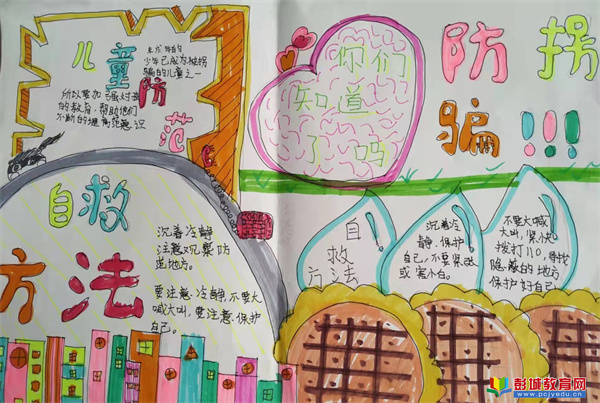 儿童防范
未成年的
少年已成为被拐
骗的儿童之一
所以要加强对
的教育，帮助他们
不断的提高
意识
你们
知道
了吗
防拐
骗!!!
自救
方法
沉着冷静
注意观察防
范地方。
要注意冷静，不要大
喊大叫，要注意保护
自己。
自
救
方法
!
沉着冷
静，保护
自己，不要紧
或害怕。
不要大喊
大叫，赶快
拨打110，寻找
隐蔽的地方
保护好自己
彭城教育网
www.pcjyedu.cn